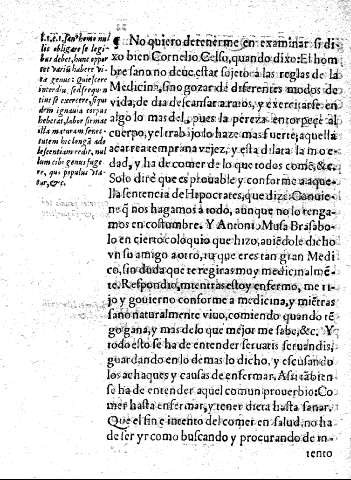 l.1.c.1. Sanº homo nul
lis obligare se legi
bus debet, hunc oppor
tet variũ habere vi
tæ genus: Quiescere
interdiu, sed frequẽ
tius se exercere, siqui
dem ignauia corpus
hebetat, labor firmat
illa maturam senec-
tutem hic longã ado
lescentiam redit, nul
lum cibi genus fuge
re, quo populus vta-
tur, &c.
¶ No quiero detenerme en examinar si di-
xo bien Cornelio Celso, quando dixo: El hom
bre sano no deue estar sujeto à las reglas de la
Medicina, sino gozar de diferentes modos de
vida, de dia descansar a ratos, y exercitarse en
algo lo mas del, pues la pereza entorpece al
cuerpo, y el trabajo lo haze mas fuerte, aquella
acarrea temprana vejez, y esta dilata la mo ce-
dad, y ha de comer de lo que todos comẽ, &c.
Solo dirè que es prouable y conforme a aque-
lla sentencia de Hipocrates, que dize: Conuie-
ne q̃ nos hagamos à todo, aunque no lo tenga-
mos en costumbre. Y Antonio Musa Brasabo-
lo en cierto coloquio que hizo, auiẽdole dicho
vn su amigo a otro, tu que eres tan gran Medi
co, sin duda que te regiras muy medicinalmẽ-
te. Respondio, mientras estoy enfermo, me ri-
jo y gouierno conforme a medicina, y miẽtras
sano naturalmente viuo, comiendo quando tẽ
go gana, y mas de lo que mejor me sabe, &c. Y
todo esto se ha de entender seruatis seruandis,
guardando en lo demas lo dicho, y escusando
los achaques y causas de enfermar. Assi tãbien
se ha de entender aquel comun prouerbio: Co
mer hasta enfermar, y tener dieta hasta sanar.
Que el fin e intento del comer en salud, no ha
de ser yr como buscando y procurando de in-
tento